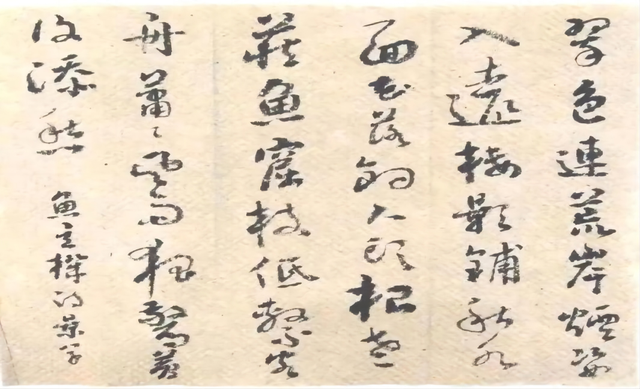 翠色連荒岸煙姿
入遠樓影鋪秋水
面花落釣人頭根老
藏魚窟枝低繫客
舟蕭〻風雨夜驚夢
復添愁 魚玄機詩